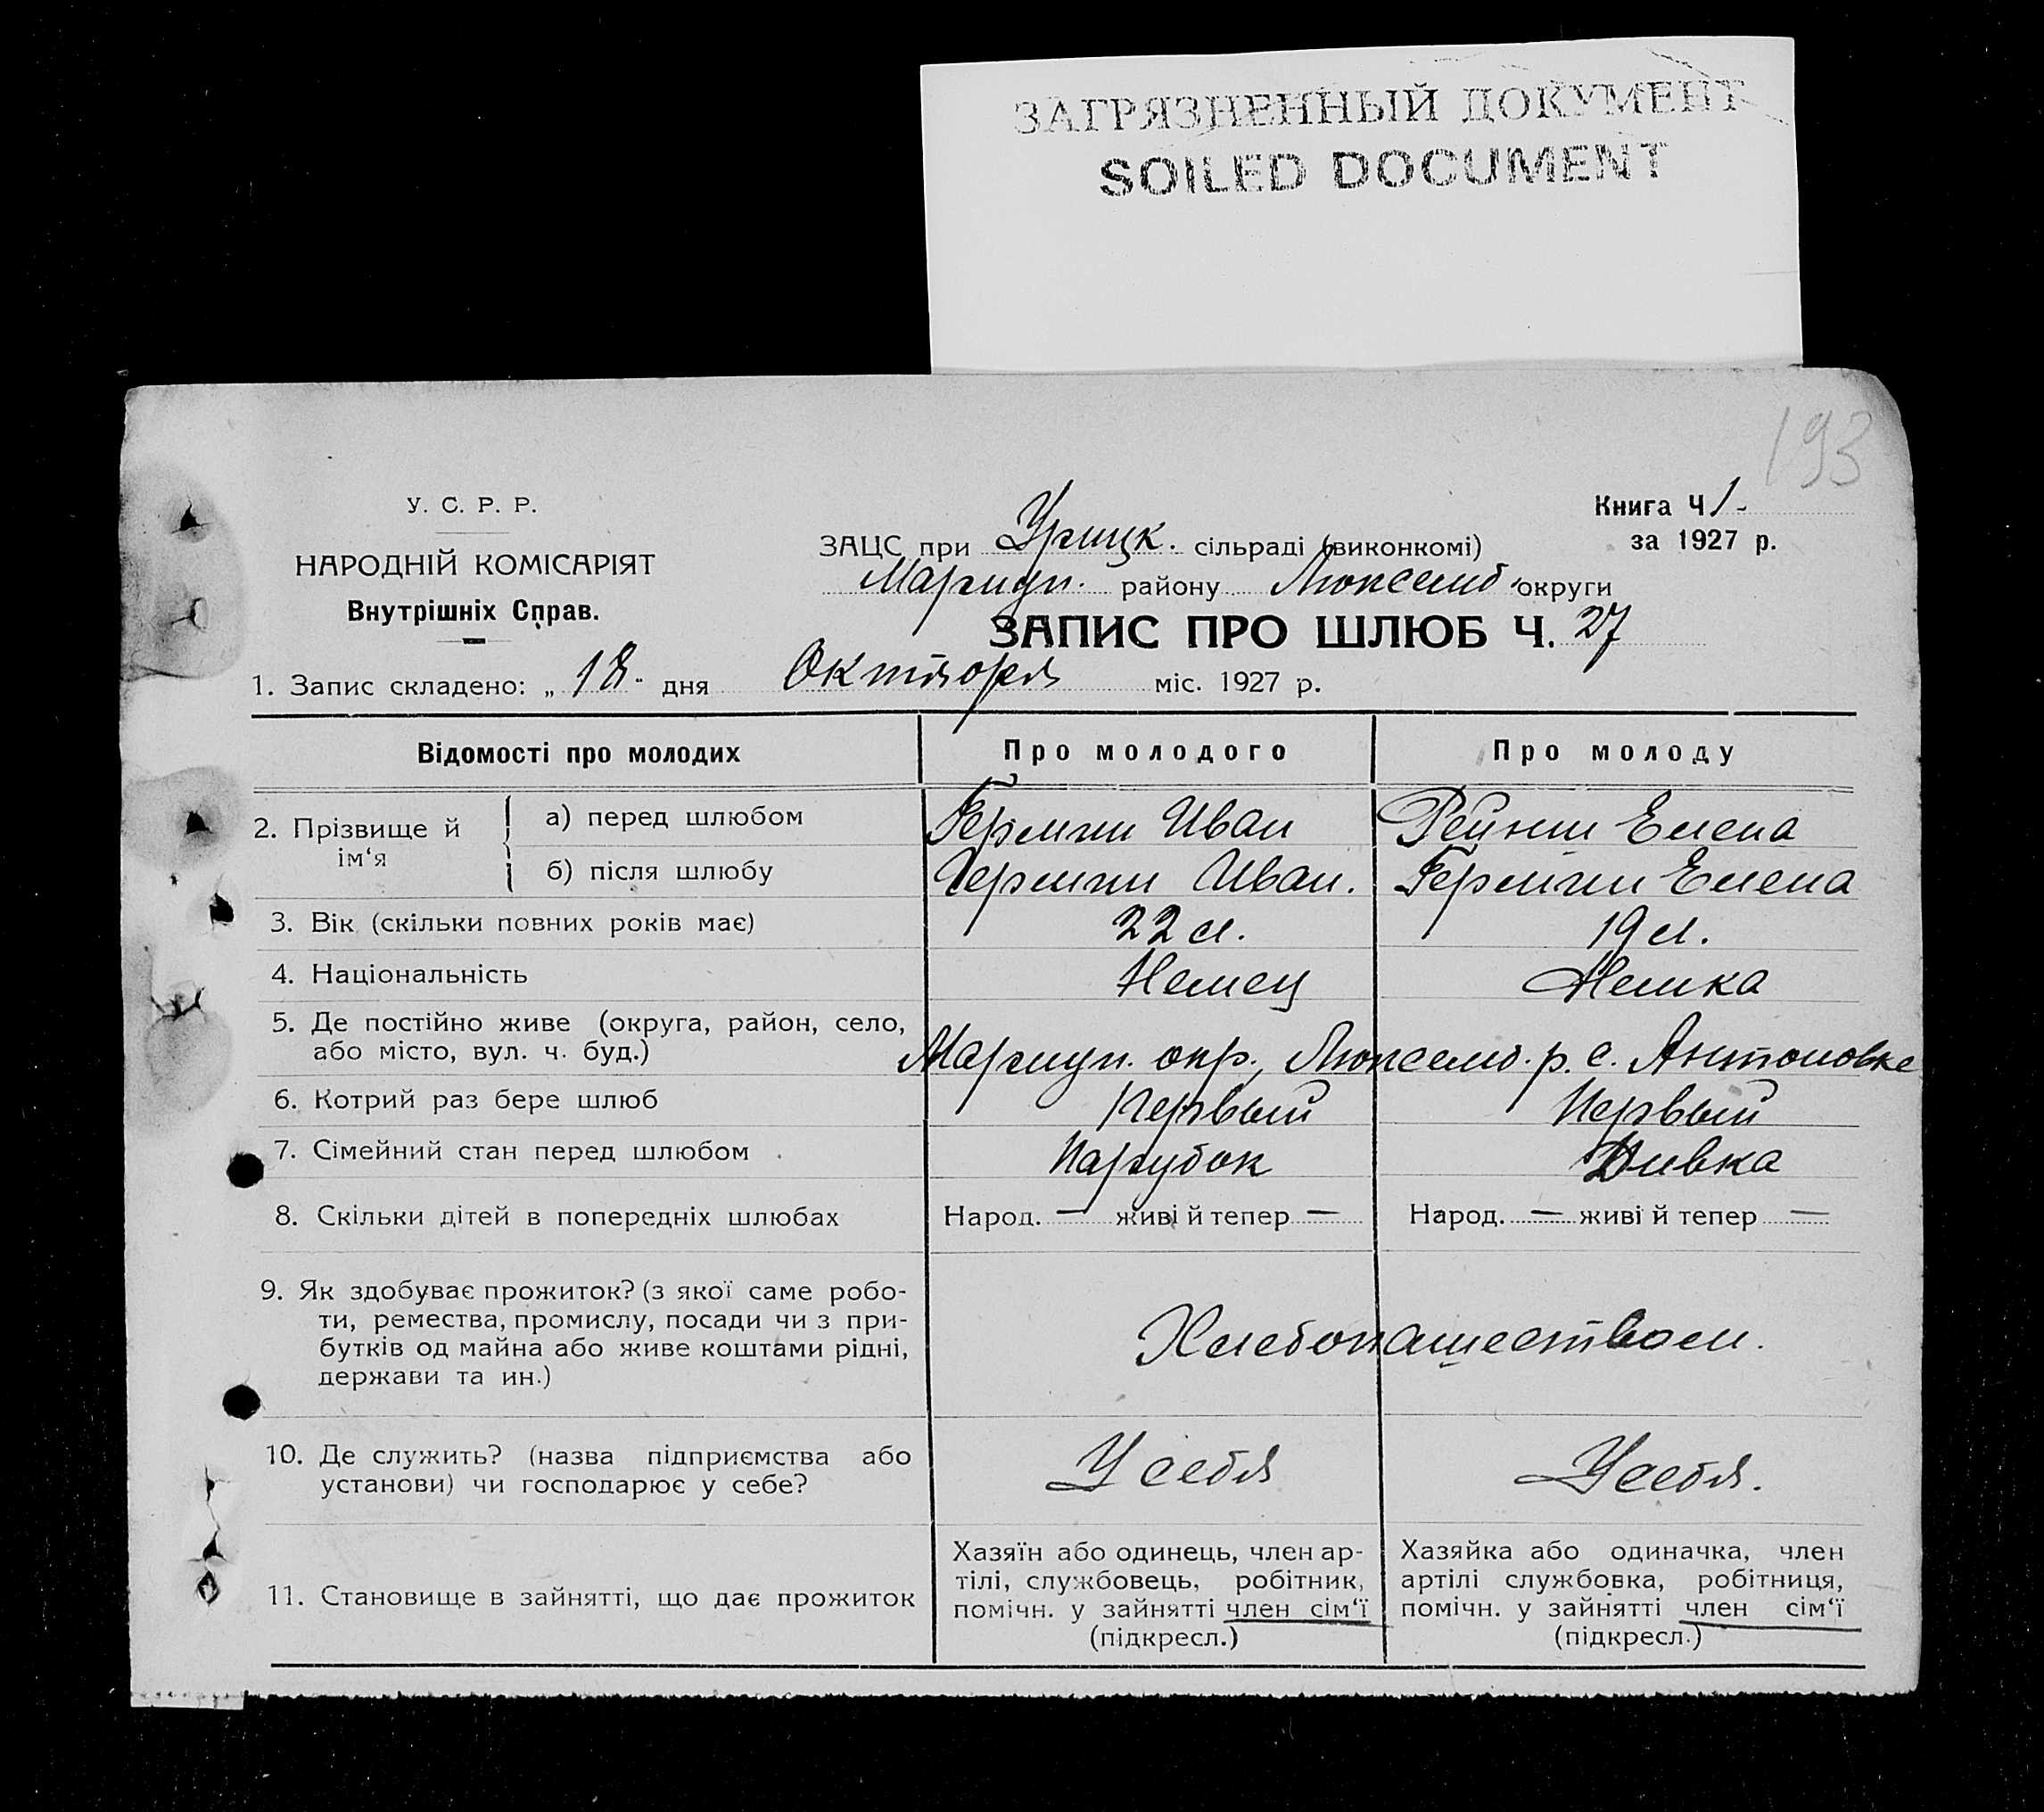 ЗАГРЯЗНЕННЫЙ ДОКУМЕНТ
SOILED DOCUMENT
193
У. С. Р. Р.
НАРОДНІЙ КОМІСАРІЯТ
Внутрішніх Справ.
Книга Ч 1-
за 1927 р.
ЗАЦС при Урицк. сільраді (виконкомі)
Мариуп. району Люксемб. округи
ЗАПИС ПРО ШЛЮБ Ч. 27
1. Запис складено: „ 18 - дня Октября міс. 1927 р.
Відомості про молодих Про молодого Про молоду
2. Прізвище й ім‘я
а) перед шлюбом Иван Елена
б) після шлюбу Иван. Елена
3. Вік (скільки повних років має) 22 л. 19 л.
4. Національність Немец Немка
5. Де постійно живе (округа, район, село,
або місто, вул. ч. буд.) Мариуп. окр., Люксемб. р. с. Антоновке
6. Котрий раз бере шлюб Первый Первый
7. Сімейний стан перед шлюбом Парубок Дивка
8. Скільки дітей в попередніх шлюбах Народ. — живі й тепер — Народ. — живі й тепер —
9. Як здобуває прожиток? (з якої саме робо-
ти, ремества, промислу, посади чи з при-
бутків од майна або живе коштами рідні,
держави та ин.)
Хлебопашеством.
10. Де служить? (назва підприємства або
установи) чи господарює у себе?
У себя У себя.
11. Становище в зайнятті, що дає прожиток
Хазяїн або одинець, член ар-
тілі, службовець, робітник,
помічн. у зайнятті член сім‘ї
(підкресл.)
Хазяйка або одиначка, член
артілі службовка, робітниця,
помічн. у зайнятті член сім‘ї
(підкресл.)